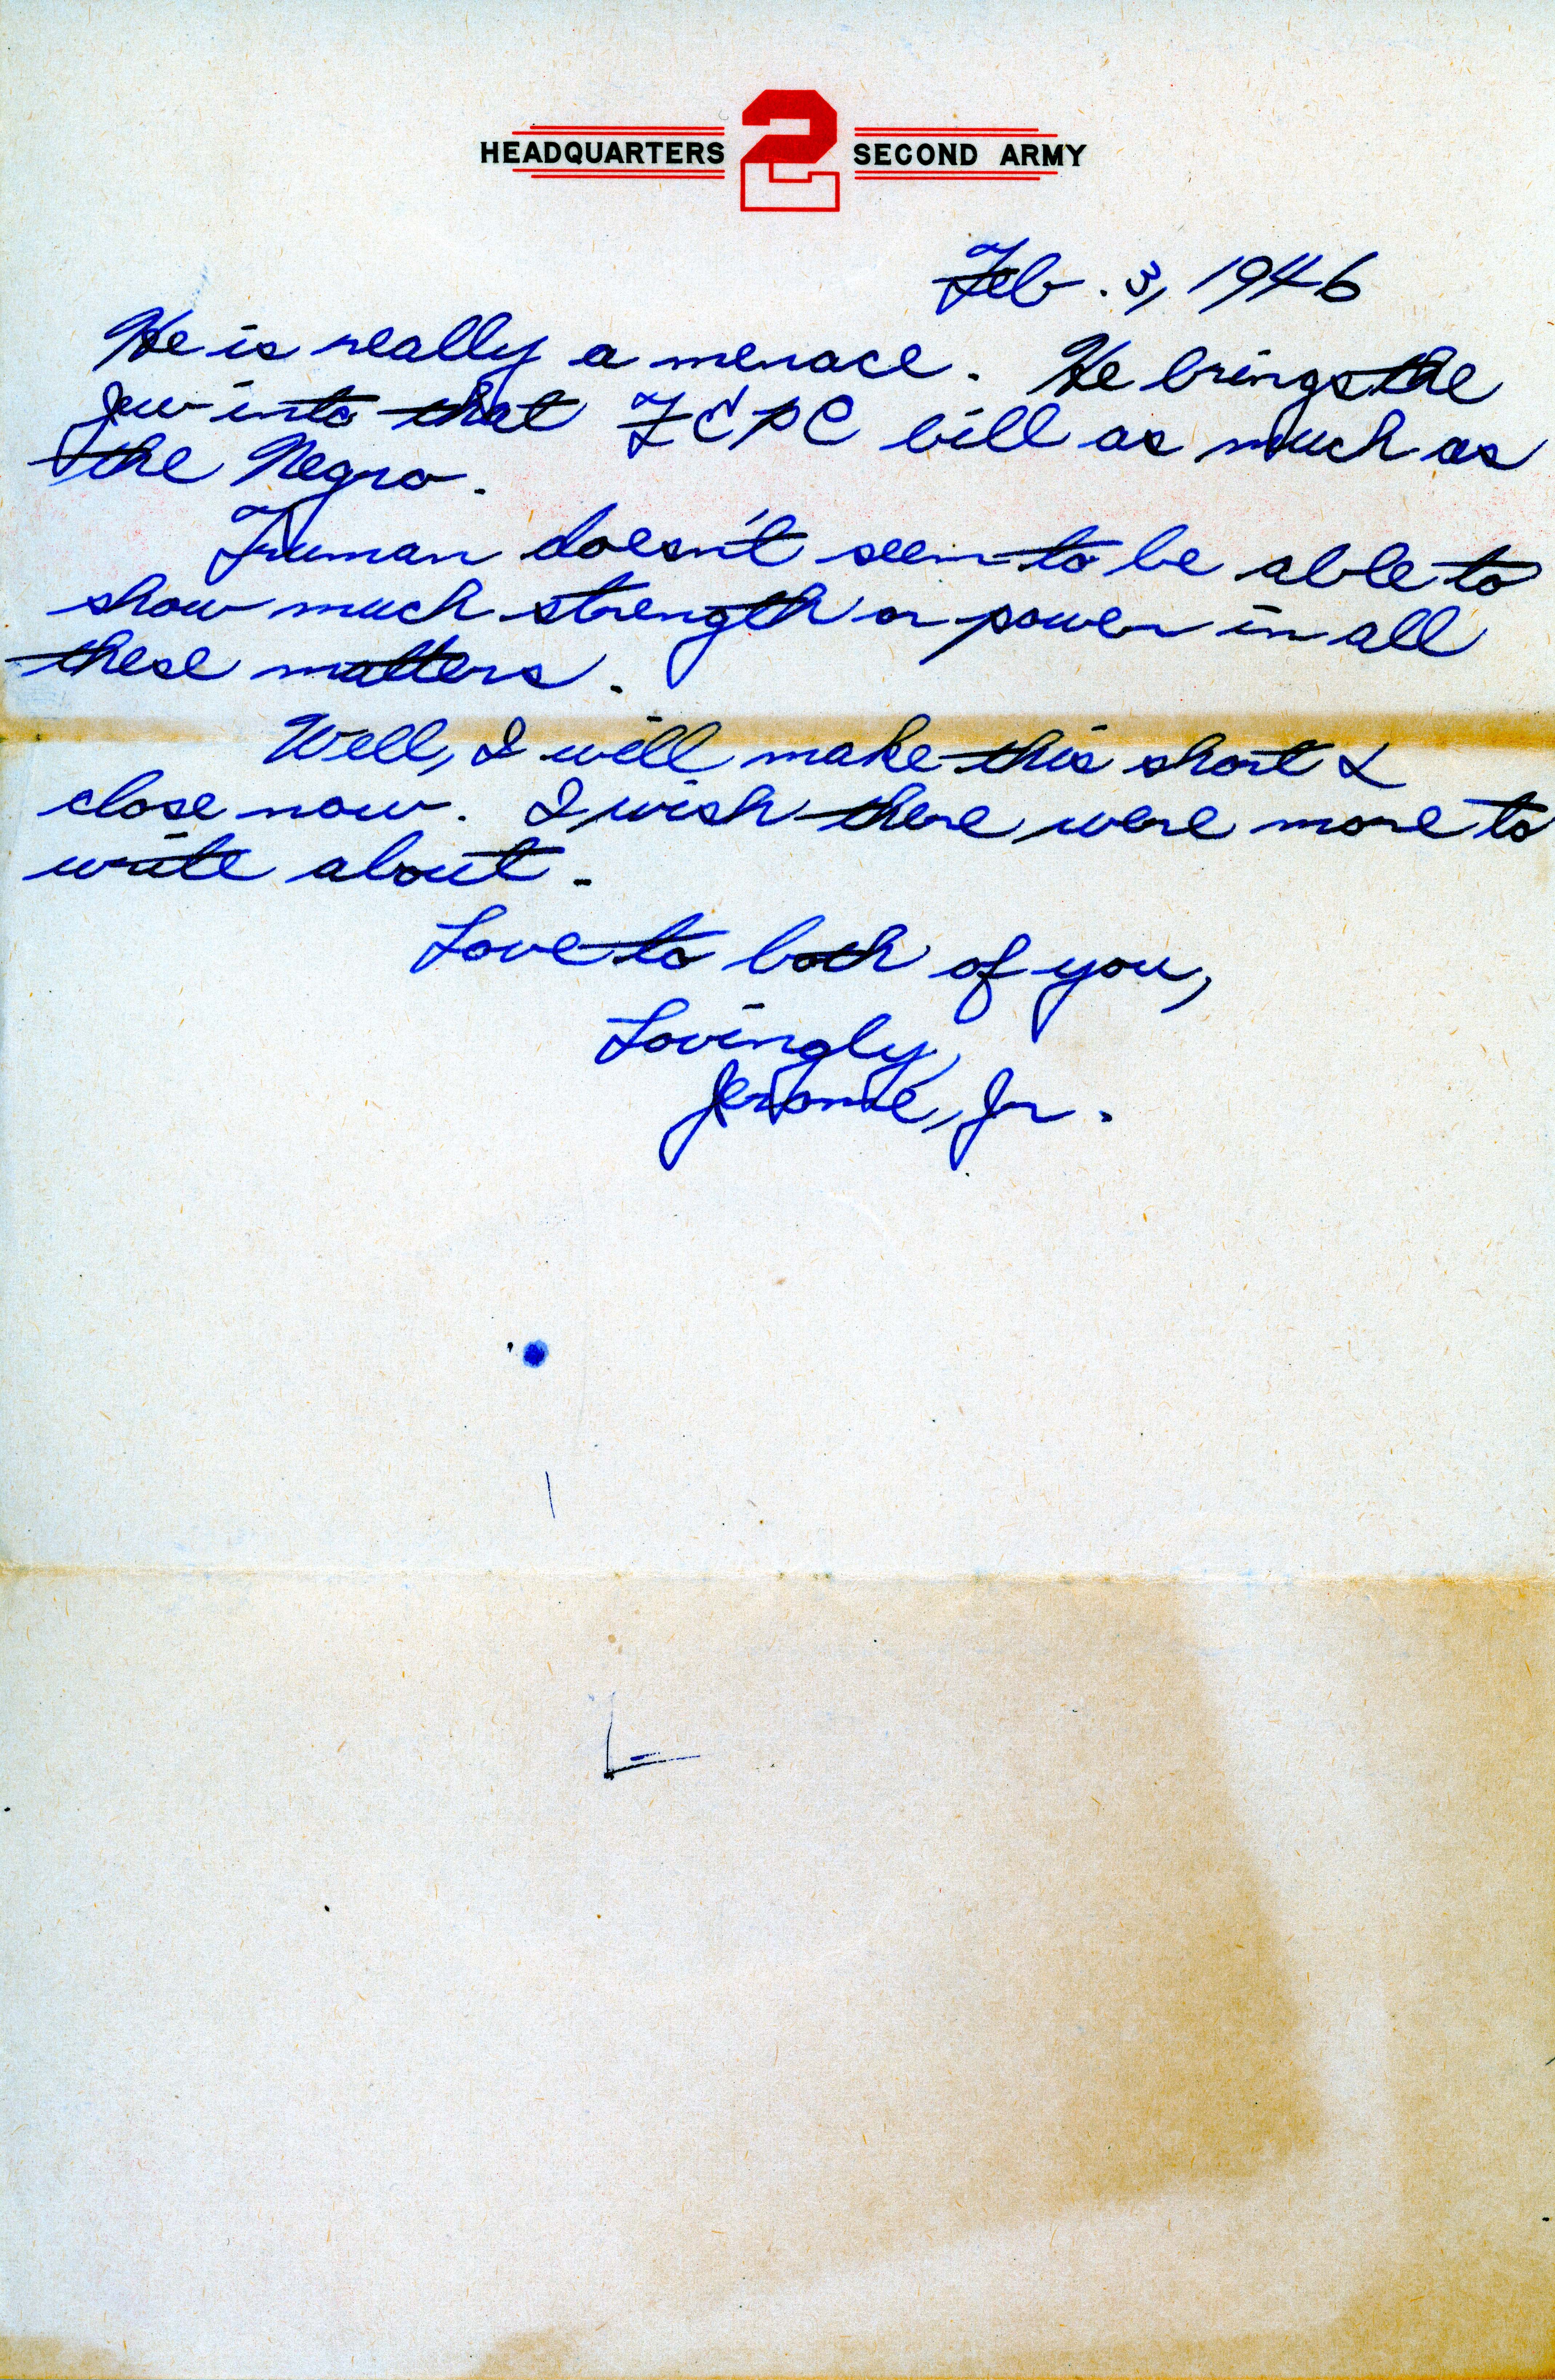 HEADQUARTERS 2 SECOND ARMY
Feb. 3, 1946
He is really a menace. He brings the
Jew into that FEPC bill as much as
the Negro.
Truman doesn't seem to be able to
show much strength or power in all
these matters.
Well, I will make this short &
close now. I wish there were more to
write about.
Love to both of you,
Lovingly,
Jerome, Jr.